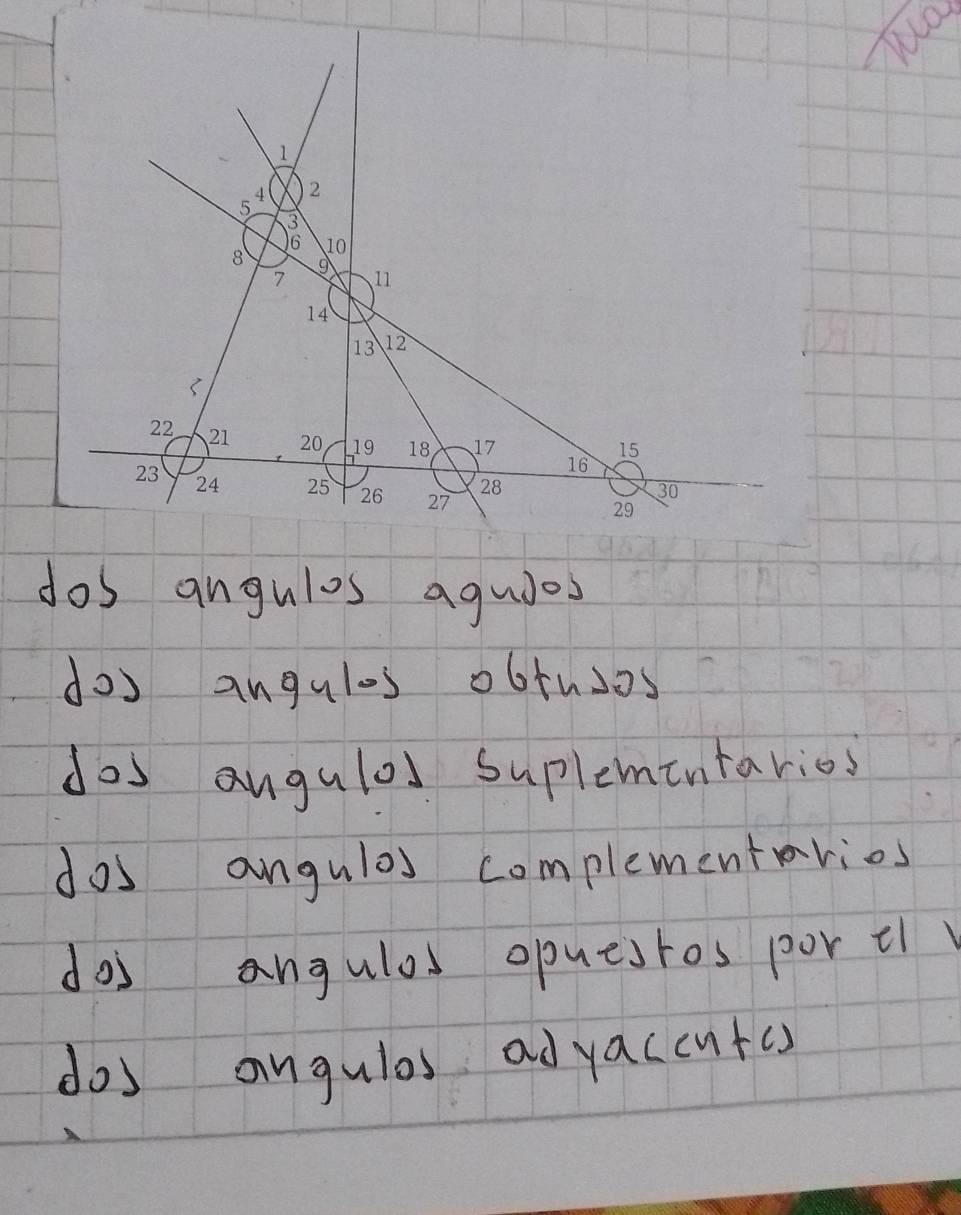 1
4 2
5 3
6 10
8 9
7 11
14
13 12
22 21 20 19 18 17 15
16
23 24 25 26 27 28 30
29
dos angulos agudos
dos angulos obtusos
dos angulos suplementarios
dos angulos complementarios
dos angulos opuestos por el v
dos angulos adyacentes